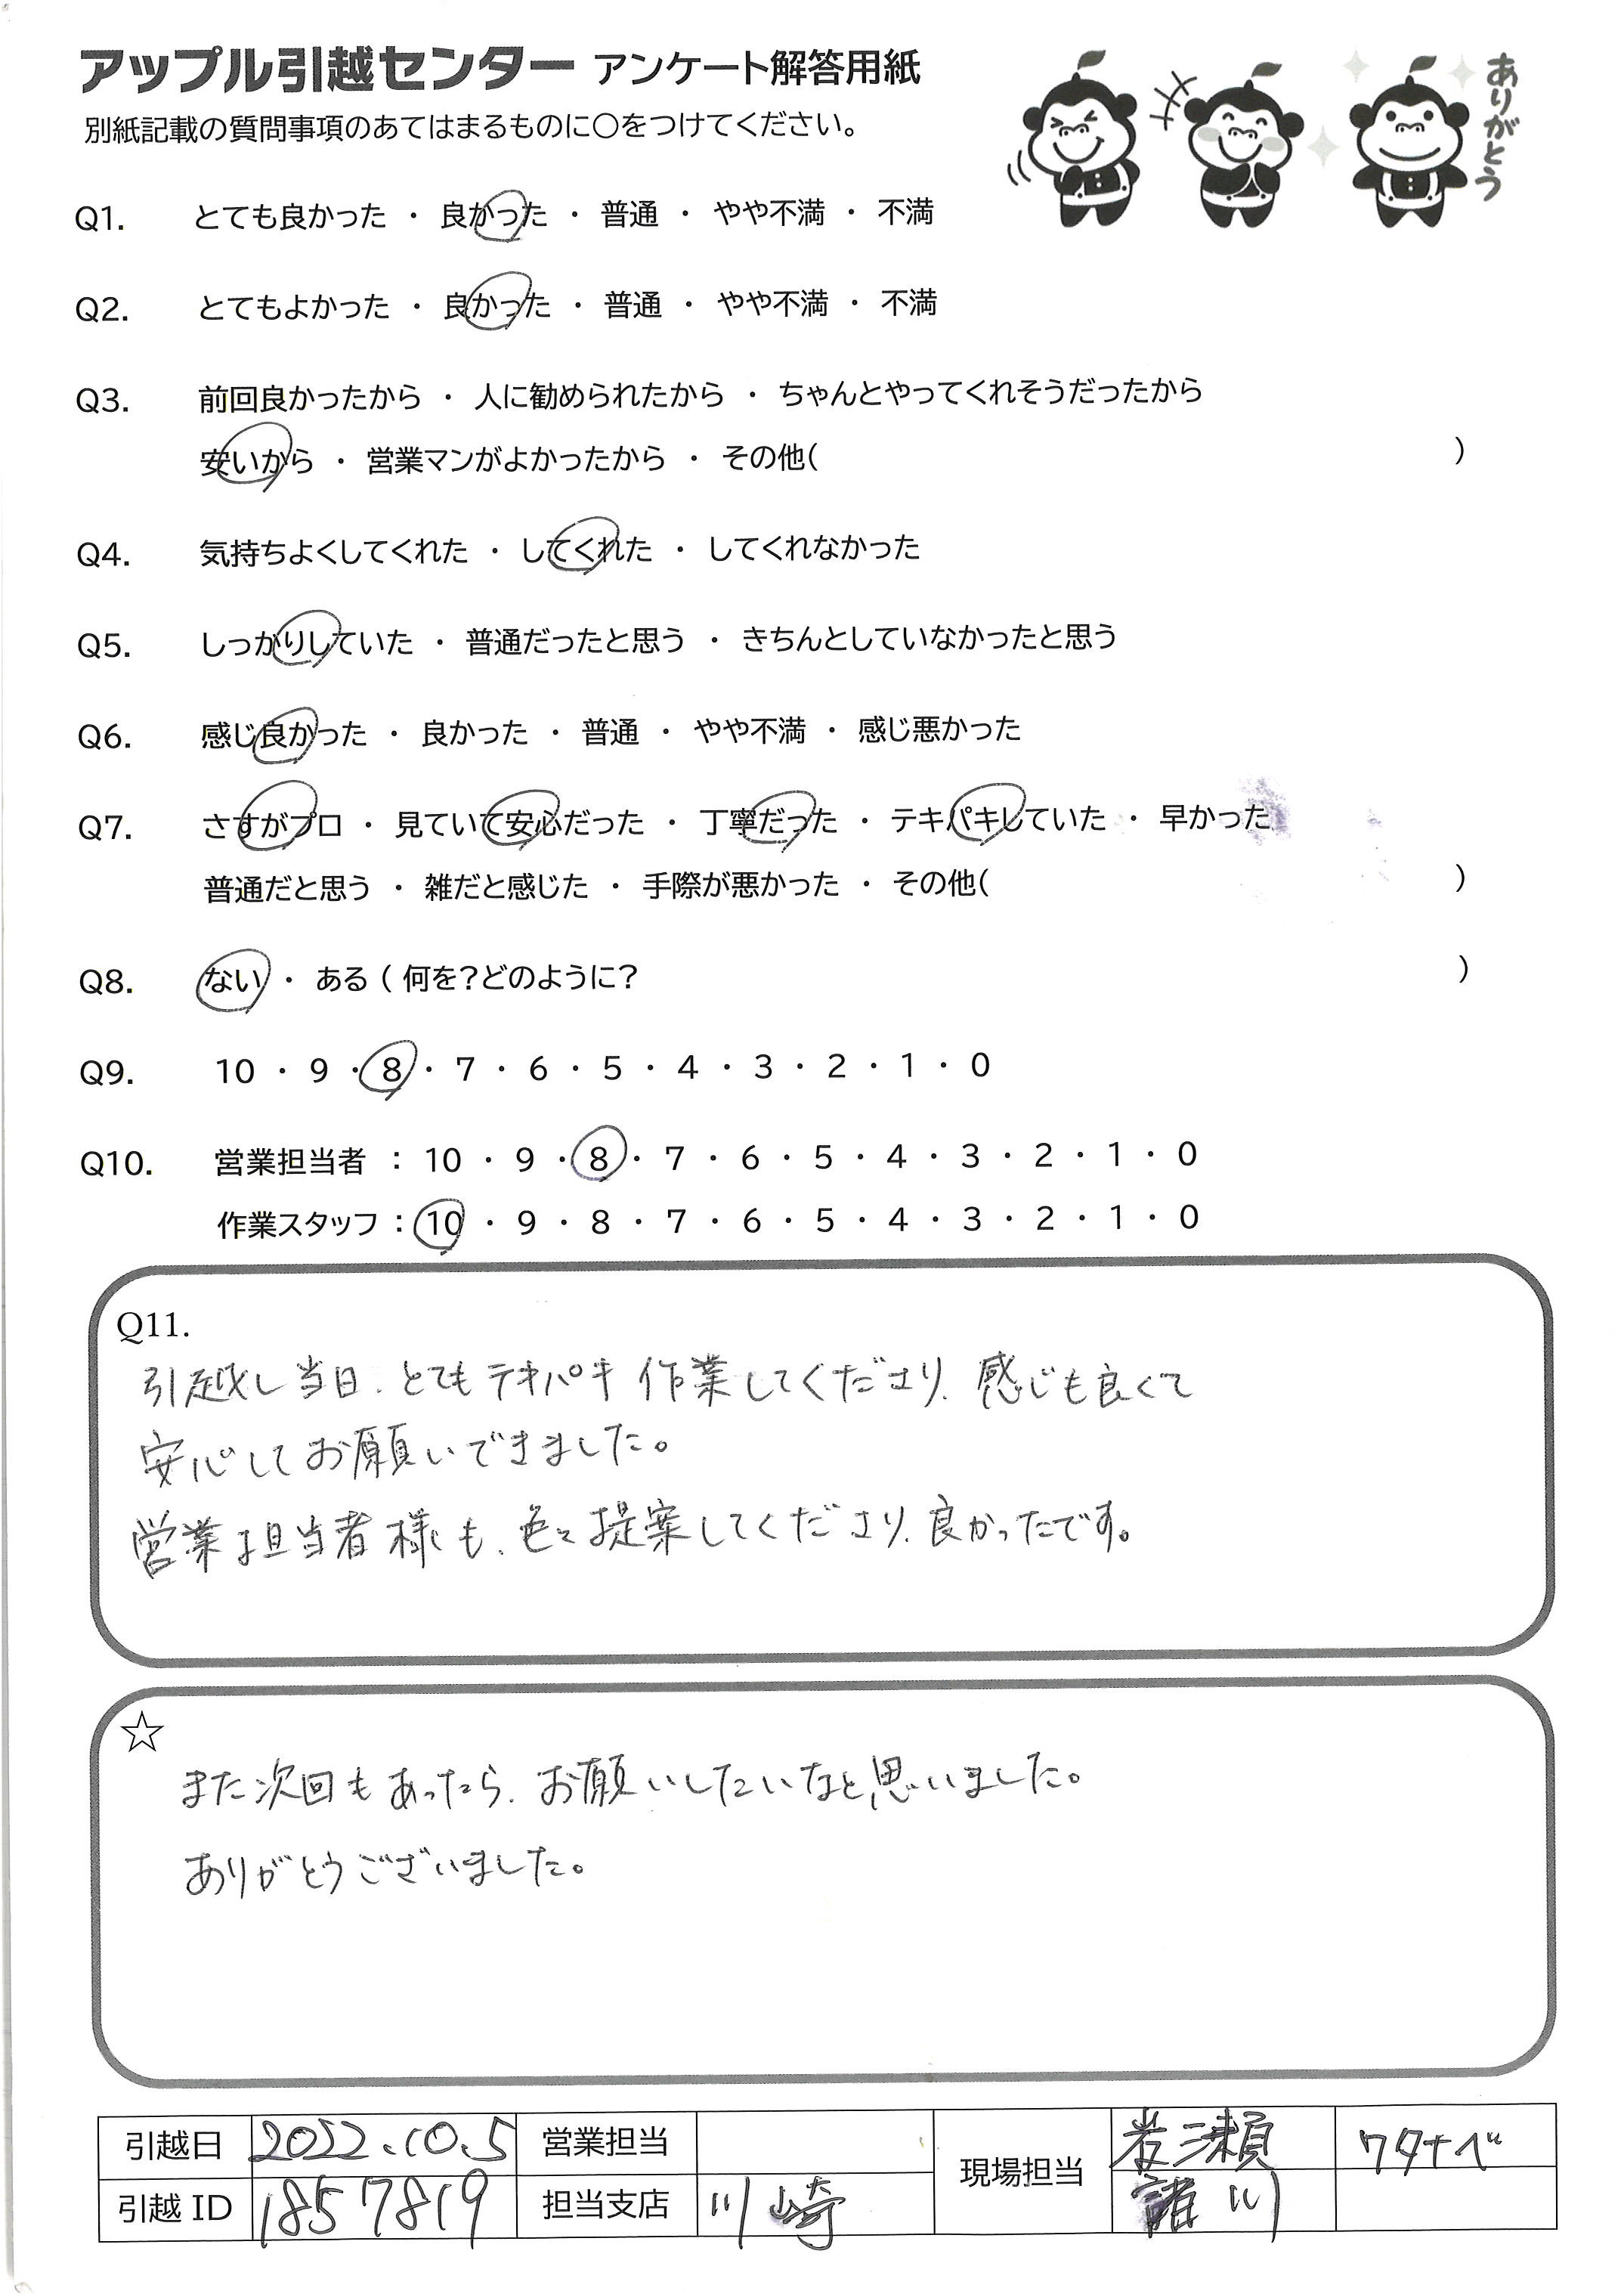 アップル引越センター アンケート解答用紙
別紙記載の質問事項のあてはまるものに○をつけてください。
ありがとう
Q1. とても良かった ・ 良かった ・ 普通 ・ やや不満 ・ 不満
Q2. とてもよかった ・ 良かった ・ 普通 ・ やや不満 ・ 不満
Q3. 前回良かったから ・ 人に勧められたから ・ ちゃんとやってくれそうだったから
安いから ・ 営業マンがよかったから ・ その他( )
Q4. 気持ちよくしてくれた ・ してくれた ・ してくれなかった
Q5. しっかりしていた ・ 普通だったと思う ・ きちんとしていなかったと思う
Q6. 感じ良かった ・ 良かった ・ 普通 ・ やや不満 ・ 感じ悪かった
Q7. さすがプロ ・ 見ていて安心だった ・ 丁寧だった ・ テキパキしていた ・ 早かった
普通だと思う ・ 雑だと感じた ・ 手際が悪かった ・ その他( )
Q8. ない ・ ある ( 何を?どのように? )
Q9. 10 ・ 9 ・ 8 ・ 7 ・ 6 ・ 5 ・ 4 ・ 3 ・ 2 ・ 1 ・ 0
Q10. 営業担当者 : 10 ・ 9 ・ 8 ・ 7 ・ 6 ・ 5 ・ 4 ・ 3 ・ 2 ・ 1 ・ 0
作業スタッフ : 10 ・ 9 ・ 8 ・ 7 ・ 6 ・ 5 ・ 4 ・ 3 ・ 2 ・ 1 ・ 0
Q11.
引越し当日、とてもテキパキ作業してくださり、感じも良くて
安心してお願いできました。
営業担当者様も、色々提案してくださり、良かったです。
☆
また次回もあったら、お願いしたいなと思いました。
ありがとうございました。
引越日 2022.10.5 営業担当 現場担当 岩瀬 ワタナベ
引越ID 1857819 担当支店 川崎 諸川